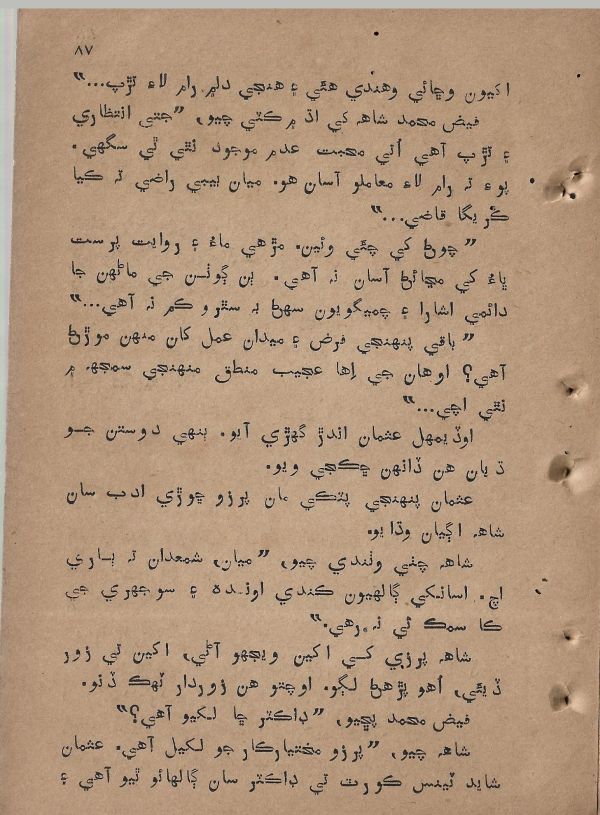 ۸۷
اکيون وڇائي وهندي هئي ۽ هنجي دلم رام لاءِ تڙپ...“
فيض محمد شاهہ کي اڌ ۾ ڪٽي چيو، ”جتي انتظاري
۽ تڙپ آهي اُتي محبت عدم موجود نٿي ٿي سگهي.
پوءِ تہ رام لاءِ معاملو آسان هو. ميان بيبي راضي تہ ڪيا
ڪريگا قاضي...“
”چوڻ کي چئي وئين. مڙهي ماءُ ۽ روايت پرست
ڀاءُ کي مڃائڻ آسان نہ آهي. ٻن ڳوٺن جي ماڻهن جا
دائمي اشارا ۽ چميگويون سهڻ بہ سٿرو ڪم نہ آهي...“
”باقي پنهنجي فرض ۽ ميدان عمل کان منهن موڙڻ
آهي؟ اوهان جي اِها عجيب منطق منهنجي سمجهہ ۾
نٿي اچي...“
اوڏيمهل عثمان اندر گهڙي آيو. ٻنهي دوستن جو
ڌيان هن ڏانهن ڇڪجي ويو.
عثمان پنهنجي پٽڪي مان پرزو ڇوڙي ادب سان
شاهہ اڳيان وڌايو.
شاهہ چٺي وٺندي چيو، ”ميان، شمعدان تہ ٻاري
اچ. اسانکي ڳالهيون ڪندي اونده ۽ سوجهري جي
ڪا سمڪ ئي نہ رهي.“
شاهہ پرزي کي اکين ويجهو آڻي، اکين تي زور
ڏيئي، اُهو پڙهڻ لڳو. اوچتو هن زوردار ٽهڪ ڏنو.
فيض محمد پڇيو، ”ڊاڪٽر ڇا لکيو آهي؟“
شاهہ چيو، ”پرزو مختيارڪار جو لکيل آهي. عثمان
شايد ٽينس ڪورٽ تي ڊاڪٽر سان ڳالهائو ٿيو آهي ۽